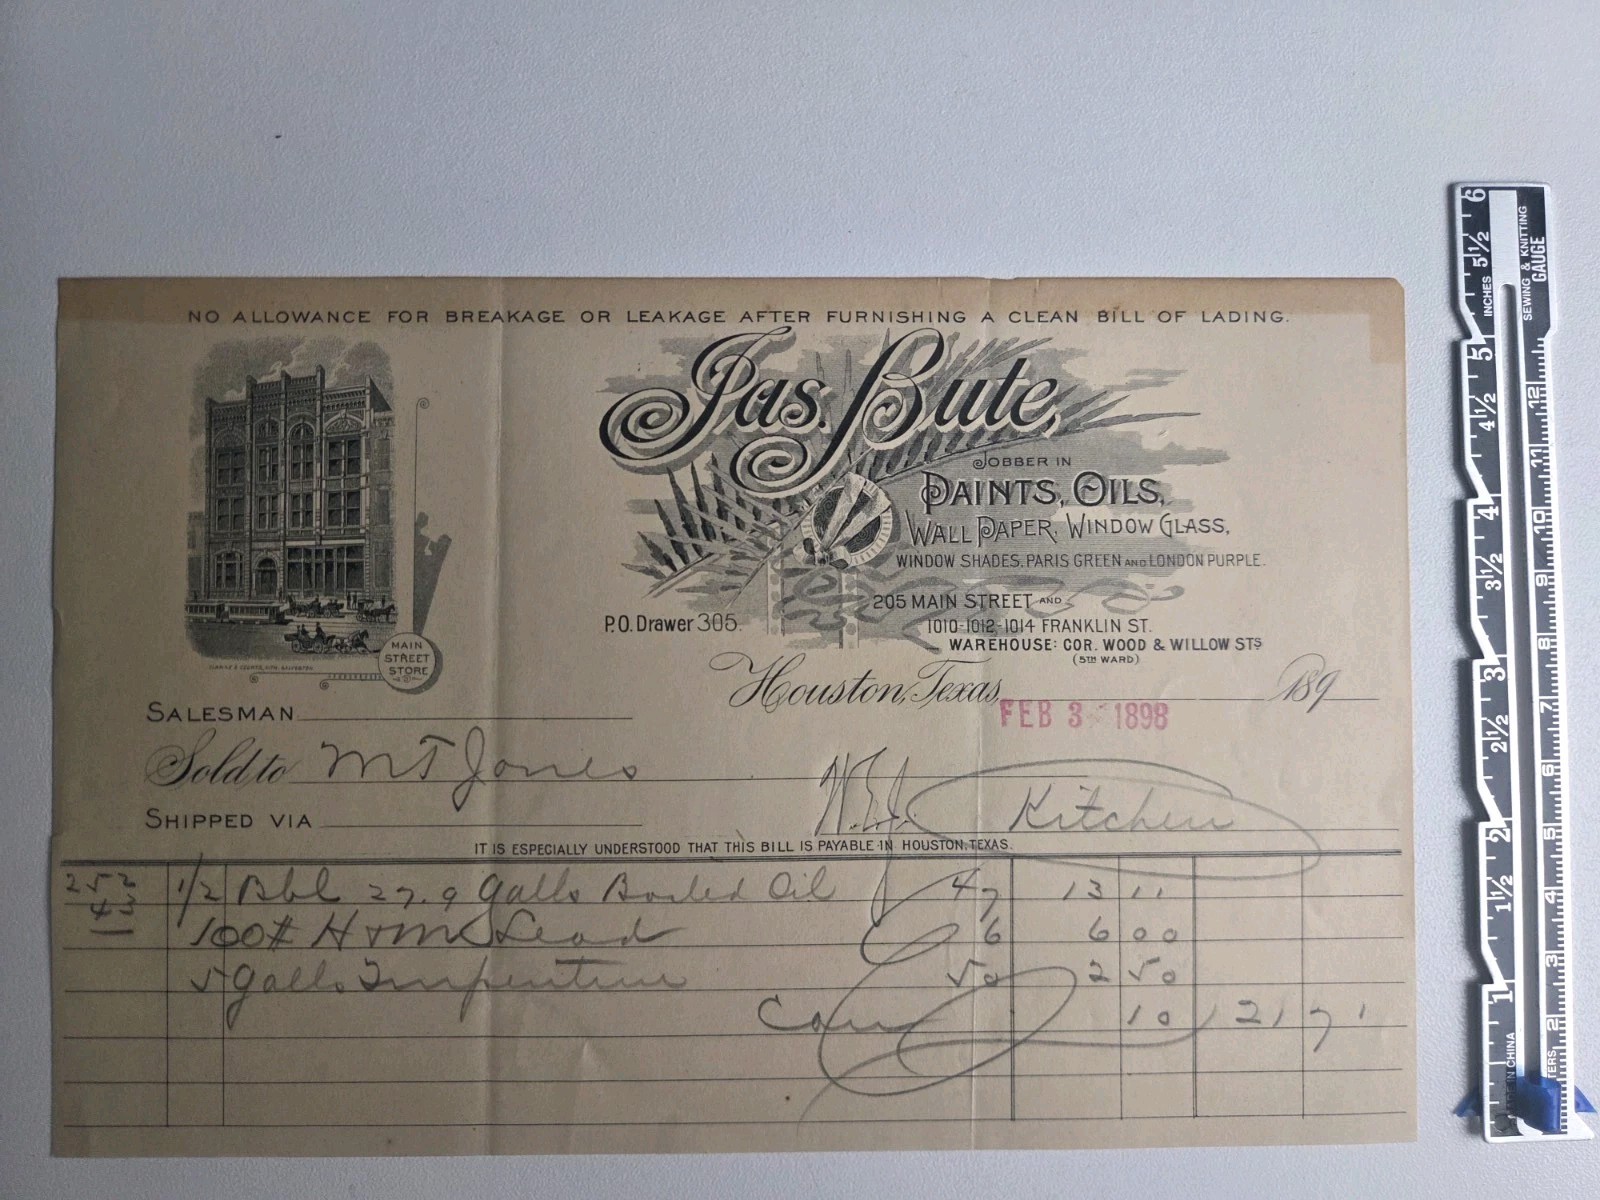 NO ALLOWANCE FOR BREAKAGE OR LEAKAGE AFTER FURNISHING A CLEAN BILL OF LADING.
Jas. Bute,
JOBBER IN
PAINTS, OILS,
WALL PAPER, WINDOW GLASS,
WINDOW SHADES, PARIS GREEN AND LONDON PURPLE.
205 MAIN STREET AND
P.O. Drawer 305.
1010-1012-1014 FRANKLIN ST.
WAREHOUSE: COR. WOOD & WILLOW STS
(5TH WARD)
MAIN STREET STORE
Houston, Texas, 189
FEB 3 1898
SALESMAN
Sold to M T Jones
SHIPPED VIA
Kitchen
IT IS ESPECIALLY UNDERSTOOD THAT THIS BILL IS PAYABLE IN HOUSTON, TEXAS.
252 1/2 Bbl 27.9 Galls Boiled Oil 47 13 11
43
100# H & M Lead 6 6 00
5 Galls Turpentine 50 2 50
10 21 71
6
5 1/2
5
4 1/2
4
3 1/2
3
2 1/2
2
1 1/2
1
INCHES
SEWING & KNITTING
GAUGE
12
11
10
9
8
7
6
5
4
3
2
IN CHINA